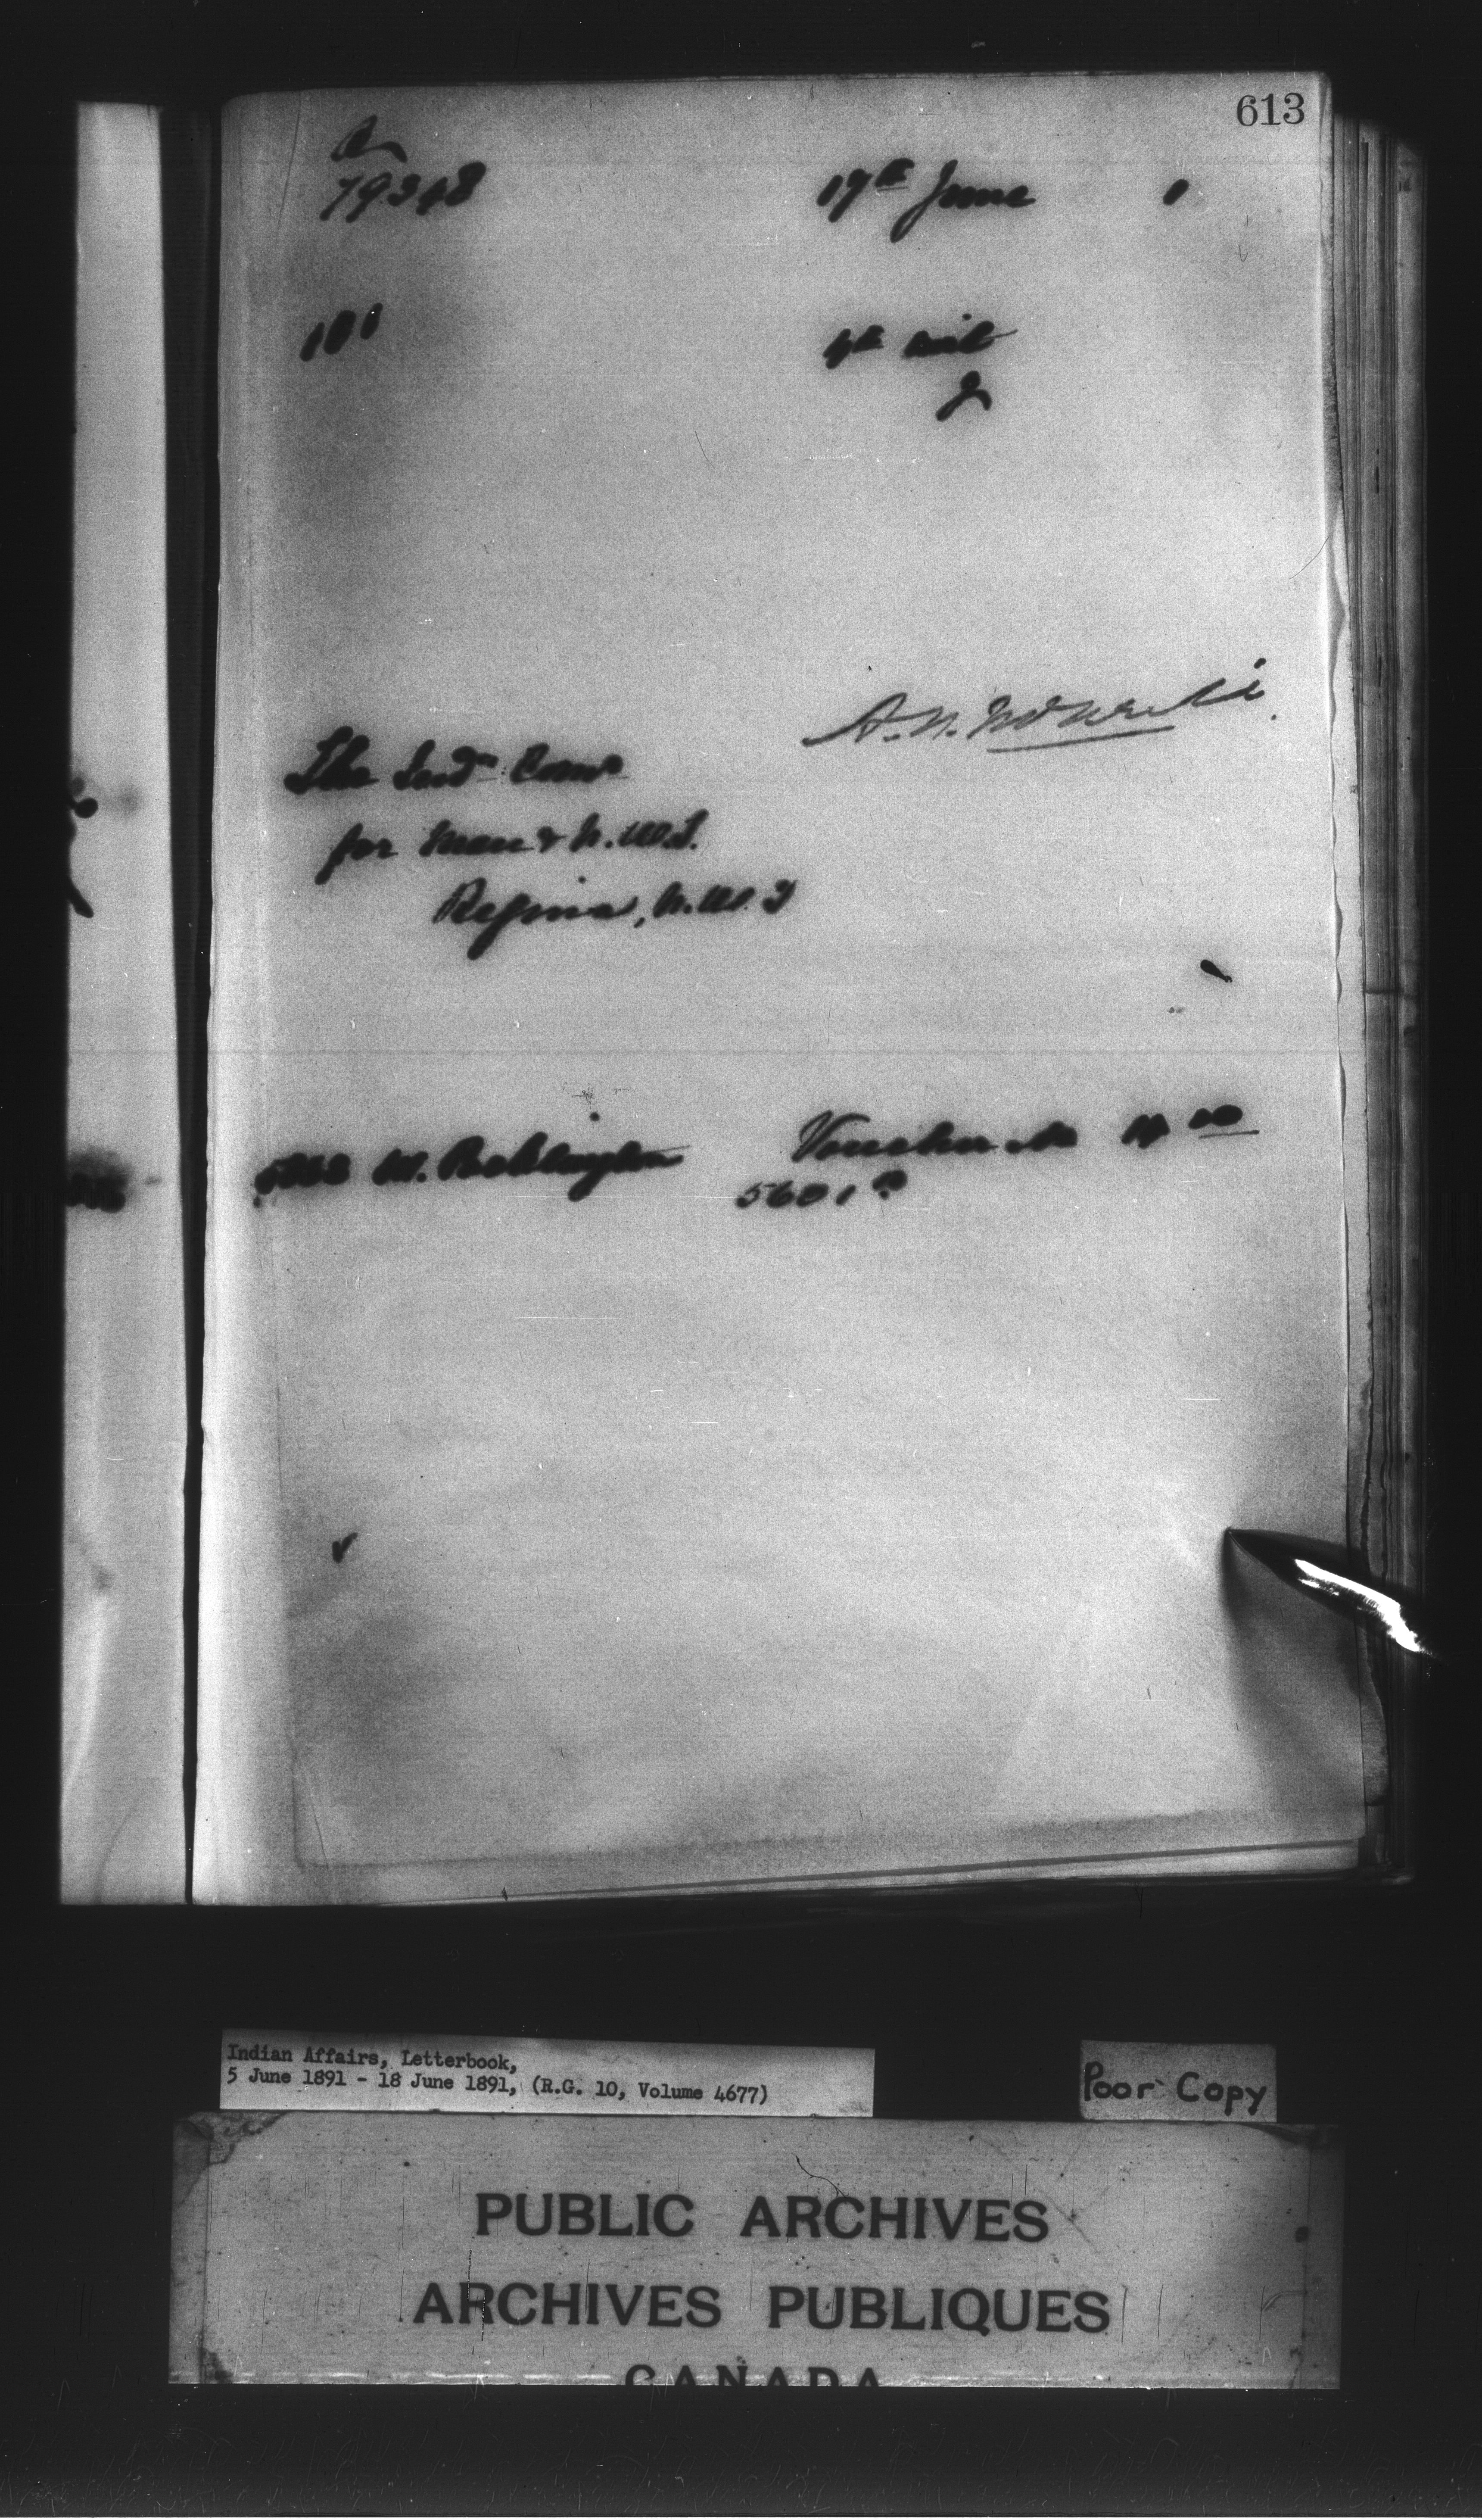 613
79348
17th June 1
101
The Indn Comr
for Man & N.W.T.
Regina, N.W.T
W. Bebbington Voucher No 14 00
5601 a
Indian Affairs, Letterbook,
5 June 1891 - 18 June 1891, (R.G. 10, Volume 4677)
Poor Copy
PUBLIC ARCHIVES
ARCHIVES PUBLIQUES
CANADA